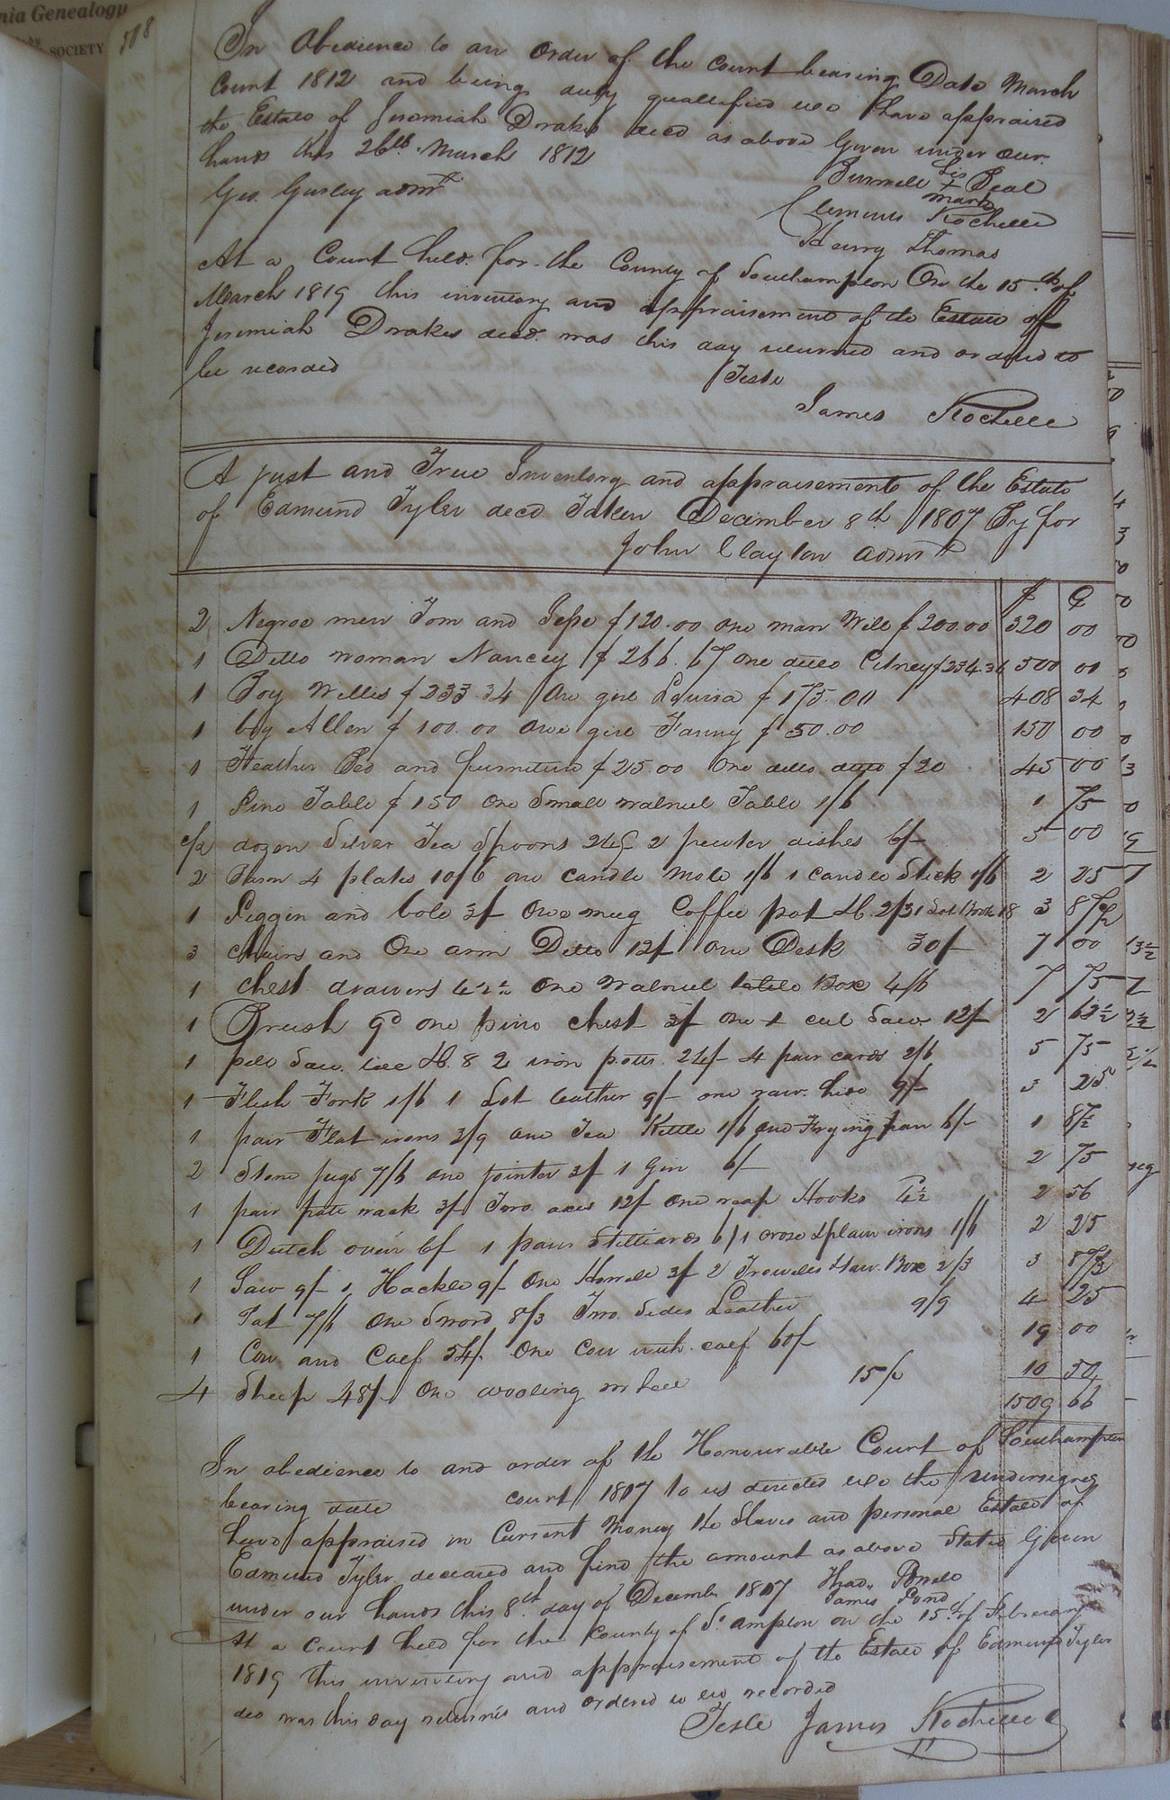 nia Genealogy
SOCIETY
508
In Obedience to an Order of the Court bearing Date March
Court 1812 and being duly quallified we have appraised
the Estate of Jeremiah Drake decd as above Given under our
hands this 26th March 1812
Burwell his Beal
x
mark
Geo Gurley admr
Clements Rochelle
Henry Thomas
At a Court held for the County of Southampton On the 15th of
March 1819 this inventory and appraisement of the Estate of
Jeremiah Drakes decd was this day returned and ordered to
be recorded
Teste
James Rochelle
A just and True Inventory and appraisements of the Estate
of Edmund Tyler decd Taken December 8th 1807 By for
John Clayton admr
$ C
2 Negroe men Tom and Jepe $120.00 one man Will $200.00 320 00
1 Ditto woman Nancey $266.67 one ditto Citney $234.34 500 01
1 Boy Willes $233.34 One girl Louisa $175.00 408 34
1 boy Allen $100.00 one girl Fanny $50.00 150 00
1 Feather Bed and furniture $25.00 One ditto ditto $20 45 00
1 Pine Table $1.50 one Small walnut Table 1/6 1 75
1/2 dozen Silver Tea Spoons 24/ 2 pewter dishes 6/ 5 00
2 Basons 4 plates 10/6 one candle mole 1/6 1 candle Stick 1/6 2 25
1 Piggin and bole 3/ One mug Coffee pot &c 2/3 1 Lot Books 18 3 87 1/2
3 chairs and One arm Ditto 12/ one Desk 30/ 7 00
1 chest drawers one walnut Box 4/6 7 75
1 Brush 9d one pine chest 3/ one + cut Saw 12/ 2 62 1/2
1 Saw &c 2 iron potts 24/ 4 pair cards 2/6 5 75
1 Flesh Fork 1/6 1 Lot leather 9/ one raw hide 9/ 3 25
1 pair Flat irons 3/9 one Tea Kettle 1/6 one Frying pan 6/ 1 87 1/2
2 Stone jugs 7/6 one jointer 3/ 1 Gin 6/ 2 75
1 pair pott rack 3/ Two axes 12/ one reap Hooks 2 56
1 Dutch oven 6/ 1 pair Stilliards 6/ 1 croze & plain irons 1/6 2 25
1 Saw 9/ 1 Hackle 9/ One 3/ 2 Trowels & Box 2/3 3 87 1/2
1 7/6 One Sword 8/3 Two Sides Leather 9/9 4 25
1 Cow and Calf 54/ One Cow with calf 60/ 19 00
4 Sheep 48/ One wooling wheel 15/ 10 50
1509 66
In obedience to and order of the Honourable Court of Southampton
bearing date court 1807 to us directed we the undersigned
have appraised in Current Money the Slaves and personal Estate of
Edmund Tyler deceased and find the amount as above Stated Given
under our hands this 8th day of December 1807 Thads Powell
James Pond
At a Court held for the County of So ampton on the 15th of February
1819 this inventory and appraisement of the Estate of Edmund Tyler
dec was this day returned and ordered to be recorded
Teste James Rochelle